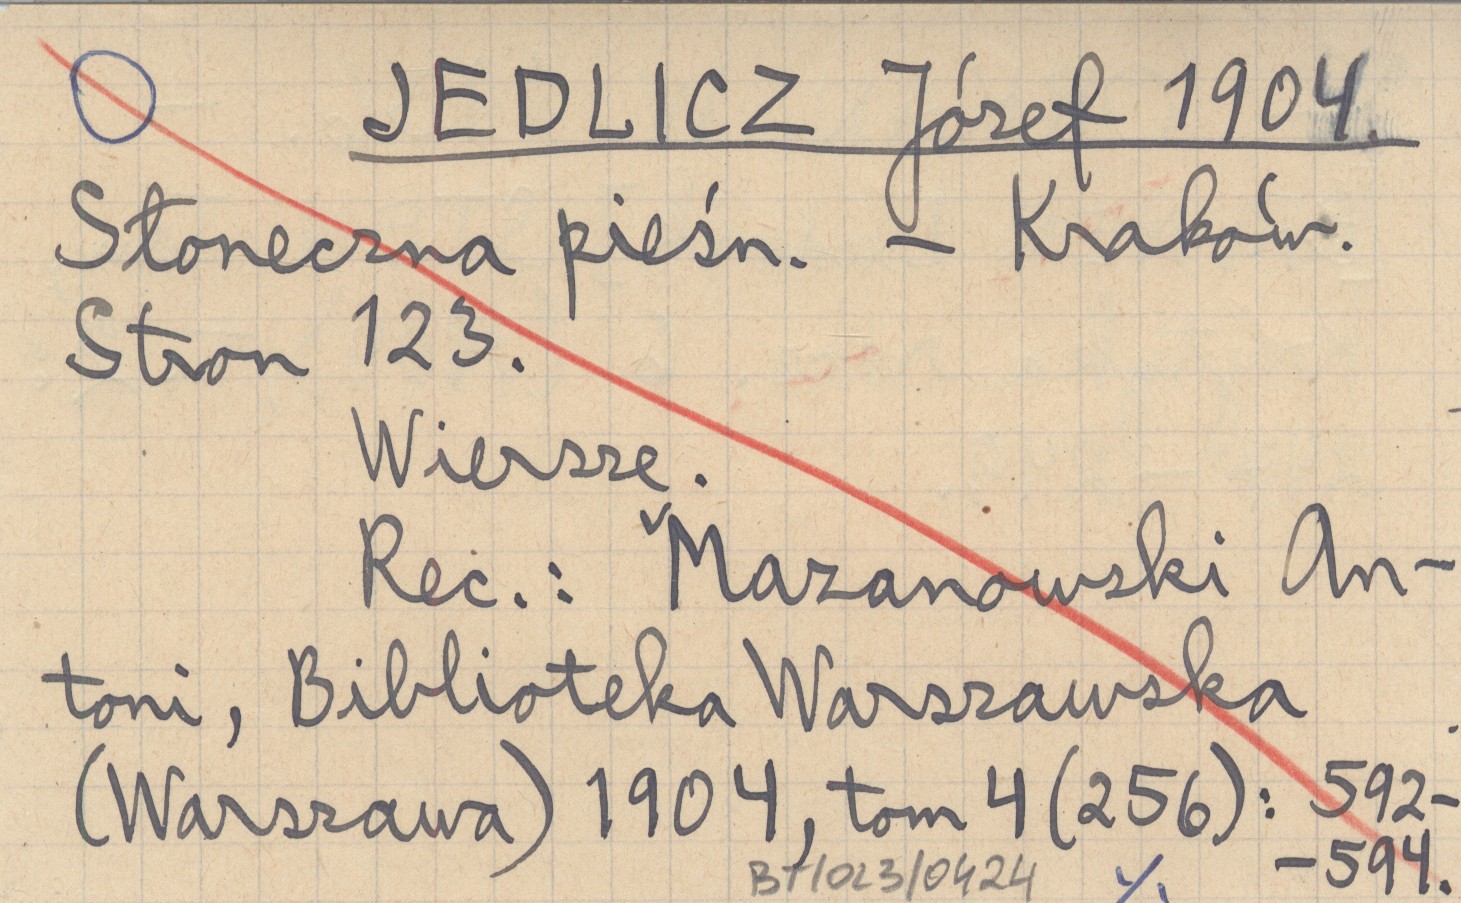 JEDLICZ Józef 1904.
Słoneczna pieśn. – Kraków.
Stron 123.
Wiersze.
Rec.: Mazanowski An-
toni, Biblioteka Warszawska
(Warszawa) 1904, tom 4 (256): 592-
-594.